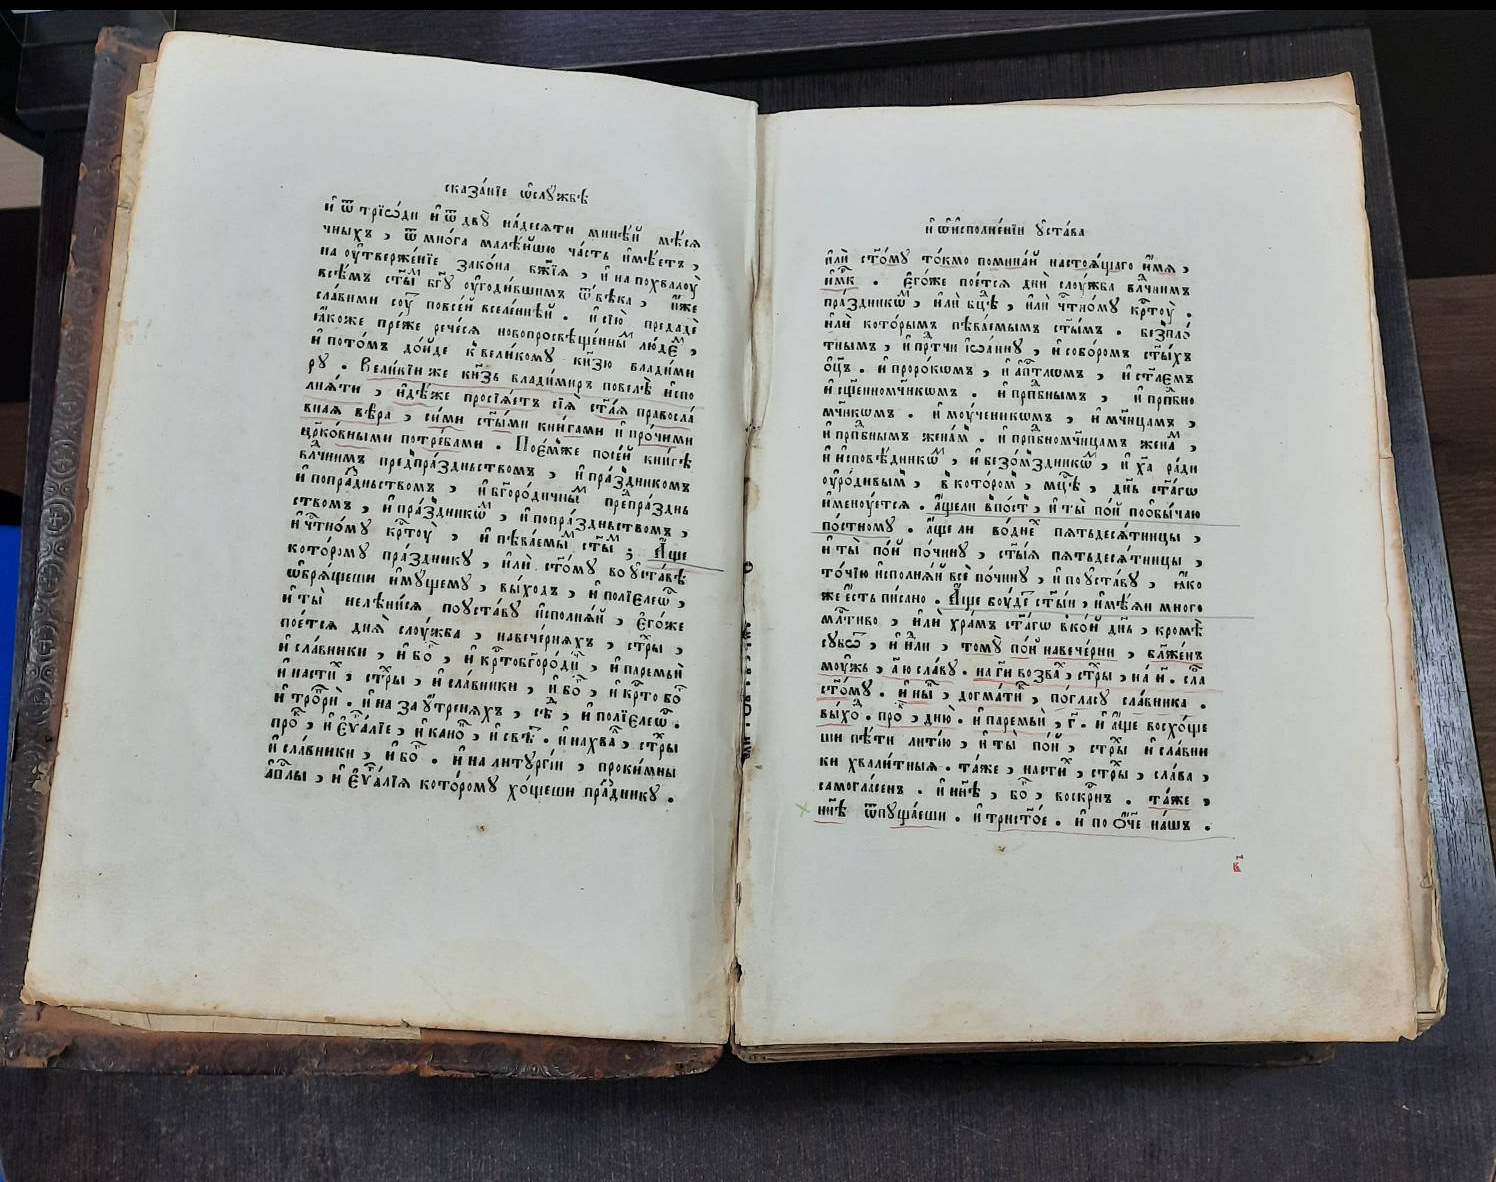 сказа́нїе ѡ҆слꙋ́жбѣ
и҆ ѿ трїѡ́ди и҆ ѿ двꙋ̀ на́десяти мине́й мѣ́ся
чныхъ , ѿ мно́га мале́йшю ча́сть и҆мѣ́етъ ,
на оу҆твержє́нїе зако́на бж҃їѧ , и҆ на похвалоу̀
всѣ́мъ ст҃ы́ⷨ бг҃ꙋ оу҆годи́вшимъ ѿ вѣ́ка , и҆́же
сла́вими сꙋⷮ҇ повсе́й вселе́ннѣй . и҆ сїю̀ предадѐ
ꙗ҆́коже пре́же рече́сѧ новопросвѣще́нныⷨ лю́деⷨ ,
и҆ пото́мъ до́йде к вели́кому кн҃зю влади́ми
рꙋ . Вели́кїи же кн҃зь влади́миръ повелѣ̀ и҆спо
лнѧ́ти , и҆дѣ́же просїѧ́етъ сїѧ̀ ст҃а́ѧ правосла́
внаѧ вѣ́ра , си́ми ст҃ы́ми кни́гами и҆ про́чими
цр҃ко́вными потре́бами . Пое́мже посе́й кни́гѣ
влⷣчнимъ предпра́здньствомъ , и҆ пра́здникомъ
и҆ попра́здньствомъ , и҆ бг҃оро́дичныⷨ предпра́зднь
ствомъ , и҆ пра́здникѡⷨ , и҆ попра́здньствомъ ,
и҆ чⷭ҇тно́му крⷭ҇тоу̀ , и҆ пѣва́емыⷨ ст҃ы́ⷨ ; А҆́ще
кото́рому пра́зднику , и҆лѝ ст҃о́му во у҆ста́вѣ
ѡ҆брѧ́щеши и҆мꙋ́щему , вы́ходъ , и҆ полїеле́ѡⷭ ,
и҆ ты̀ нелѣни́сѧ по уста́вꙋ и҆сполнѧ́й , е҆го́же
пое́тсѧ днѧ̀ слоу́жба , навече́рнѧхъ , стⷯры ,
и҆ сла́вники , и҆ бо҇ , и҆ крⷭ҇тобг҃оро́дⷩ҇и , и҆ паремьѝ
и҆ настиⷯ , стⷯры , и҆ сла́вники , и҆ бо҇ , и҆ крⷭ҇то бо҇
и҆ тро҇ри̑ . и҆ на за у҆́тренѧхъ , сѣⷣ , и҆ полїеле́ѡⷭ .
про҇ , и҆ е҆ѵⷢ҇а́лїе , и҆ кано҇ , и҆ свѣ҇ . и҆ нахваⷧ , стⷯры
и҆ сла́вники , и҆ бо҇ . и҆ на литургі́и , проки́мны
а҆пⷭ҇лы , и҆ е҆ѵⷢ҇а́лїѧ кото́рому хо́щеши пра́зднику .
и҆ ѡ҆ и҆сполне́нїи у҆ста́ва
и҆лѝ ст҃о́му то́кмо помина́й настоѧ́щаго и҆́мѧ ,
и҆́мⷬ҇к . Е҆го́же пое́тсѧ днѝ слоу́жба влⷣчнимъ
пра́здникѡⷨ , и҆лѝ бц҃ѣ , и҆лѝ чⷭ҇тно́му крⷭ҇тоу̀ .
и҆лѝ кото́рымъ пѣва́емымъ ст҃ы́мъ . безпло́
тнымъ , и҆ прⷣтчи і҆ѡа́нну , и҆ собо́ромъ ст҃ы́хъ
о҆ц҃ъ . и҆ проро́кѡмъ , и҆ а҆пⷭ҇тлѡмъ , и҆ ст҃лємъ
и҆ сщ҃енномчⷩ҇кѡмъ . и҆ прпⷣбнымъ , и҆ прпⷣбно
мчⷩ҇кѡмъ . и҆ моу́ченикѡмъ , и҆ мчⷩ҇цамъ ,
и҆ прпⷣбнымъ жена́мъ . и҆ прпⷣбномчⷩ҇цамъ жена́ⷨ ,
и҆ и҆сповѣ́дникѡⷨ , и҆ безмѣ́здникѡⷨ , и҆ хⷭ҇а ра́ди
оу҆ро́дивымъ , в кото́ромъ , мцⷭ҇ѣ , дн҃ь ст҃а́гѡ
и҆менꙋ́етсѧ . а҆́щели впо́стъ , и҆ ты̀ по́й поѡбы́чаю
по́стному . а҆́ще ли во́днеⷯ пѧтьдесѧ́тницы ,
и҆ ты̀ по́й по́чину , ст҃ы́ѧ пѧтьдесѧ́тницы ,
то́чїю и҆сполнѧ́й всѐ по́чину , и҆ по у҆ста́вꙋ , ꙗ҆́ко
же е҆́сть пи́сано . А҆́ще бꙋ́детъ ст҃ы́и , и҆мѣ́ѧи много
млⷭ҇тиво , и҆лѝ хра́мъ ст҃а́гѡ вко́й дн҃ь , кромѣ̀
сꙋбѡⷮ , и҆ нⷣли , тому̀ по́й навече́рни , блаже́нъ
мꙋ́жь , а҃ ю сла́ву . на гⷭ҇и возваⷯ , стⷯры , на и҃ . сла
ст҃о́му . и҆ ны҃ , догма́тиⷦ , погла́су сла́вника .
вы́хоⷣ . про҇ , дню̀ . и҆ паремьѝ , г҃ . и҆ а҆́ще восхо́ще
ши пѣ́ти литїю̀ , и҆ ты̀ по́й , стⷯры и҆ сла́вни
ки хвали́тныѧ . та́же , настиⷯ , стⷯры , сла́ва ,
самогла́сенъ . и҆ нн҃ѣ , бо҇ , воскрⷭ҇нъ . та́же ,
нн҃ѣ ѿпꙋща́еши . и҆ трист҃о́е . и҆ по Ѻ҆́ч҃е на́шъ .